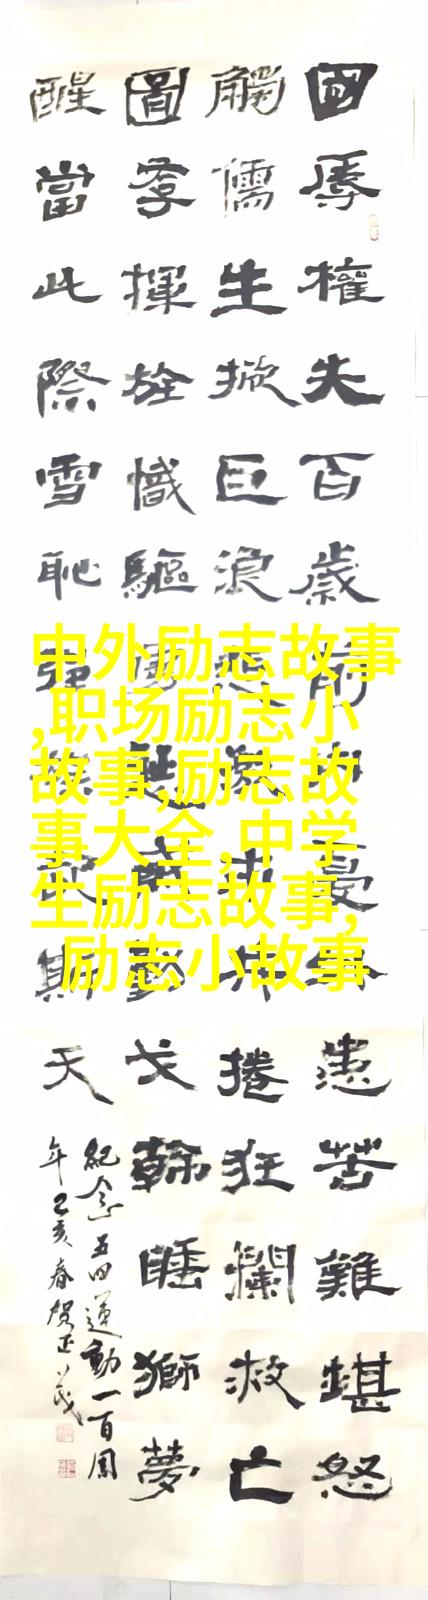 國辱權失百歲前憂外患苦難堪怒
觸儒生掀巨浪捲狂瀾救亡
圖存揮旌幟驅戈睡獅夢
醒當此際雪恥強族斯天
紀念五四運動一百周
年己亥春賀正
中外励志故事
,职场励志小
故事,励志故
事大全,中学
生励志故事,
励志小故事